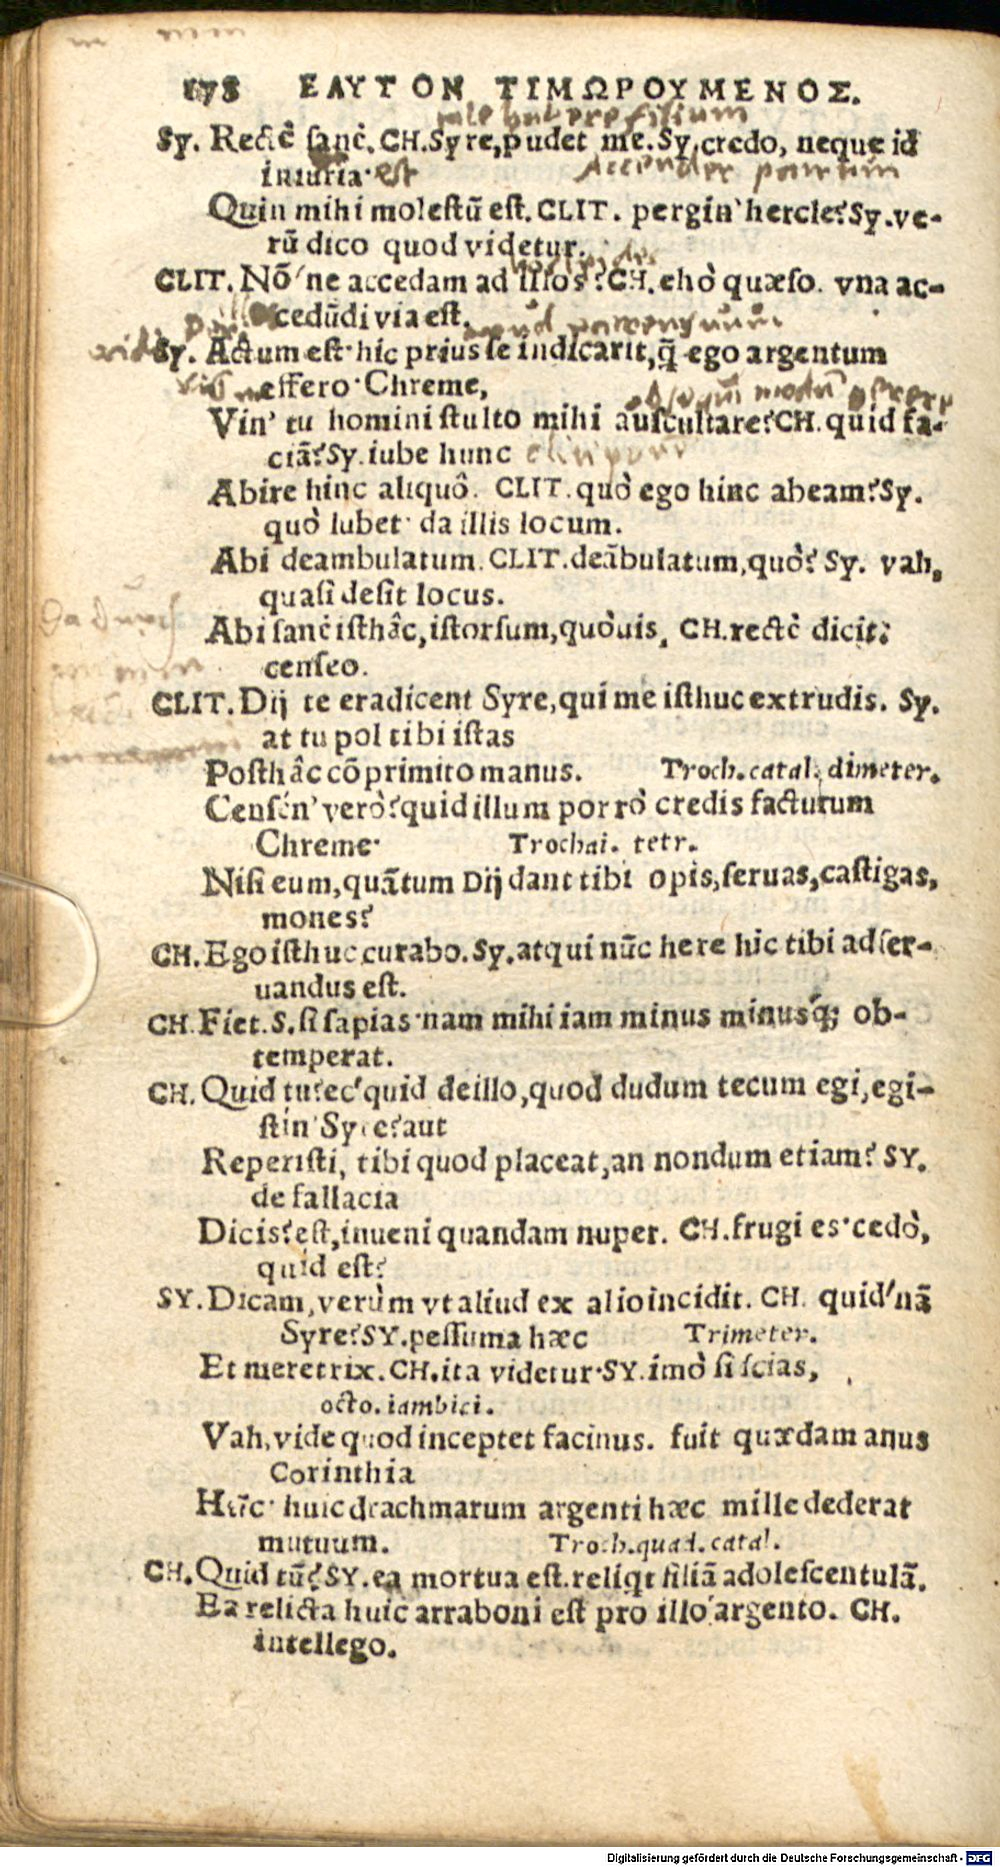 178 ΕΑΥΤΟΝ ΤΙΜΩΡΟΥΜΕΝΟΣ.
Sy. Rectè sanè. CH. Syre, pudet me. Sy. credo, neque id
iniuria· est
Quin mihi molestũ est. CLIT. pergin' hercle? Sy. ve-
rũ dico quod videtur.
CLIT. Nõ'ne accedam ad illos? CH. eho quæso. vna ac-
cedũdi via est.
Sy. Actum est· hic prius se indicarit, q̃ ego argentum
effero· Chreme,
Vin' tu homini stulto mihi auscultare? CH. quid fa-
ciã? Sy. iube hunc
Abire hinc aliquô. CLIT. quò ego hinc abeam? Sy.
quò lubet· da illis locum.
Abi deambulatum. CLIT. deãbulatum, quò? Sy. vah,
quasi desit locus.
Abi sanè isthâc, istorsum, quòuis, CH. rectè dicit:
censeo.
CLIT. Dij te eradicent Syre, qui me isthuc extrudis. Sy.
at tu pol tibi istas
Posthâc cõprimito manus. Troch. catal. dimeter.
Censén' verò? quid illum porrò credis facturum
Chreme· Trochai. tetr.
Nisi eum, quãtum Dij dant tibi opis, seruas, castigas,
mones?
CH. Ego isthuc curabo. Sy. atqui nũc here hic tibi adser-
uandus est.
CH. Fiet. S. si sapias· nam mihi iam minus minusq́; ob-
temperat.
CH. Quid tu? ec'quid de illo, quod dudum tecum egi, egi-
stin' Syre? aut
Reperisti, tibi quod placeat, an nondum etiam? SY.
de fallacia
Dicis? est, inueni quandam nuper. CH. frugi es· cedò,
quid est?
SY. Dicam, verùm vt aliud ex alio incidit. CH. quid'nã
Syre? SY. pessuma hæc Trimeter.
Et meretrix. CH. ita videtur· SY. imò si scias,
octo. iambici.
Vah, vide quod inceptet facinus. fuit quædam anus
Corinthia
Hũc· huic drachmarum argenti hæc mille dederat
mutuum. Troch. quad. catal.
CH. Quid tũ? SY. ea mortua est. reliqt filiã adolescentulã.
Ea relicta huic arraboni est pro illo argento. CH.
intellego.
Digitalisierung gefördert durch die Deutsche Forschungsgemeinschaft - DFG